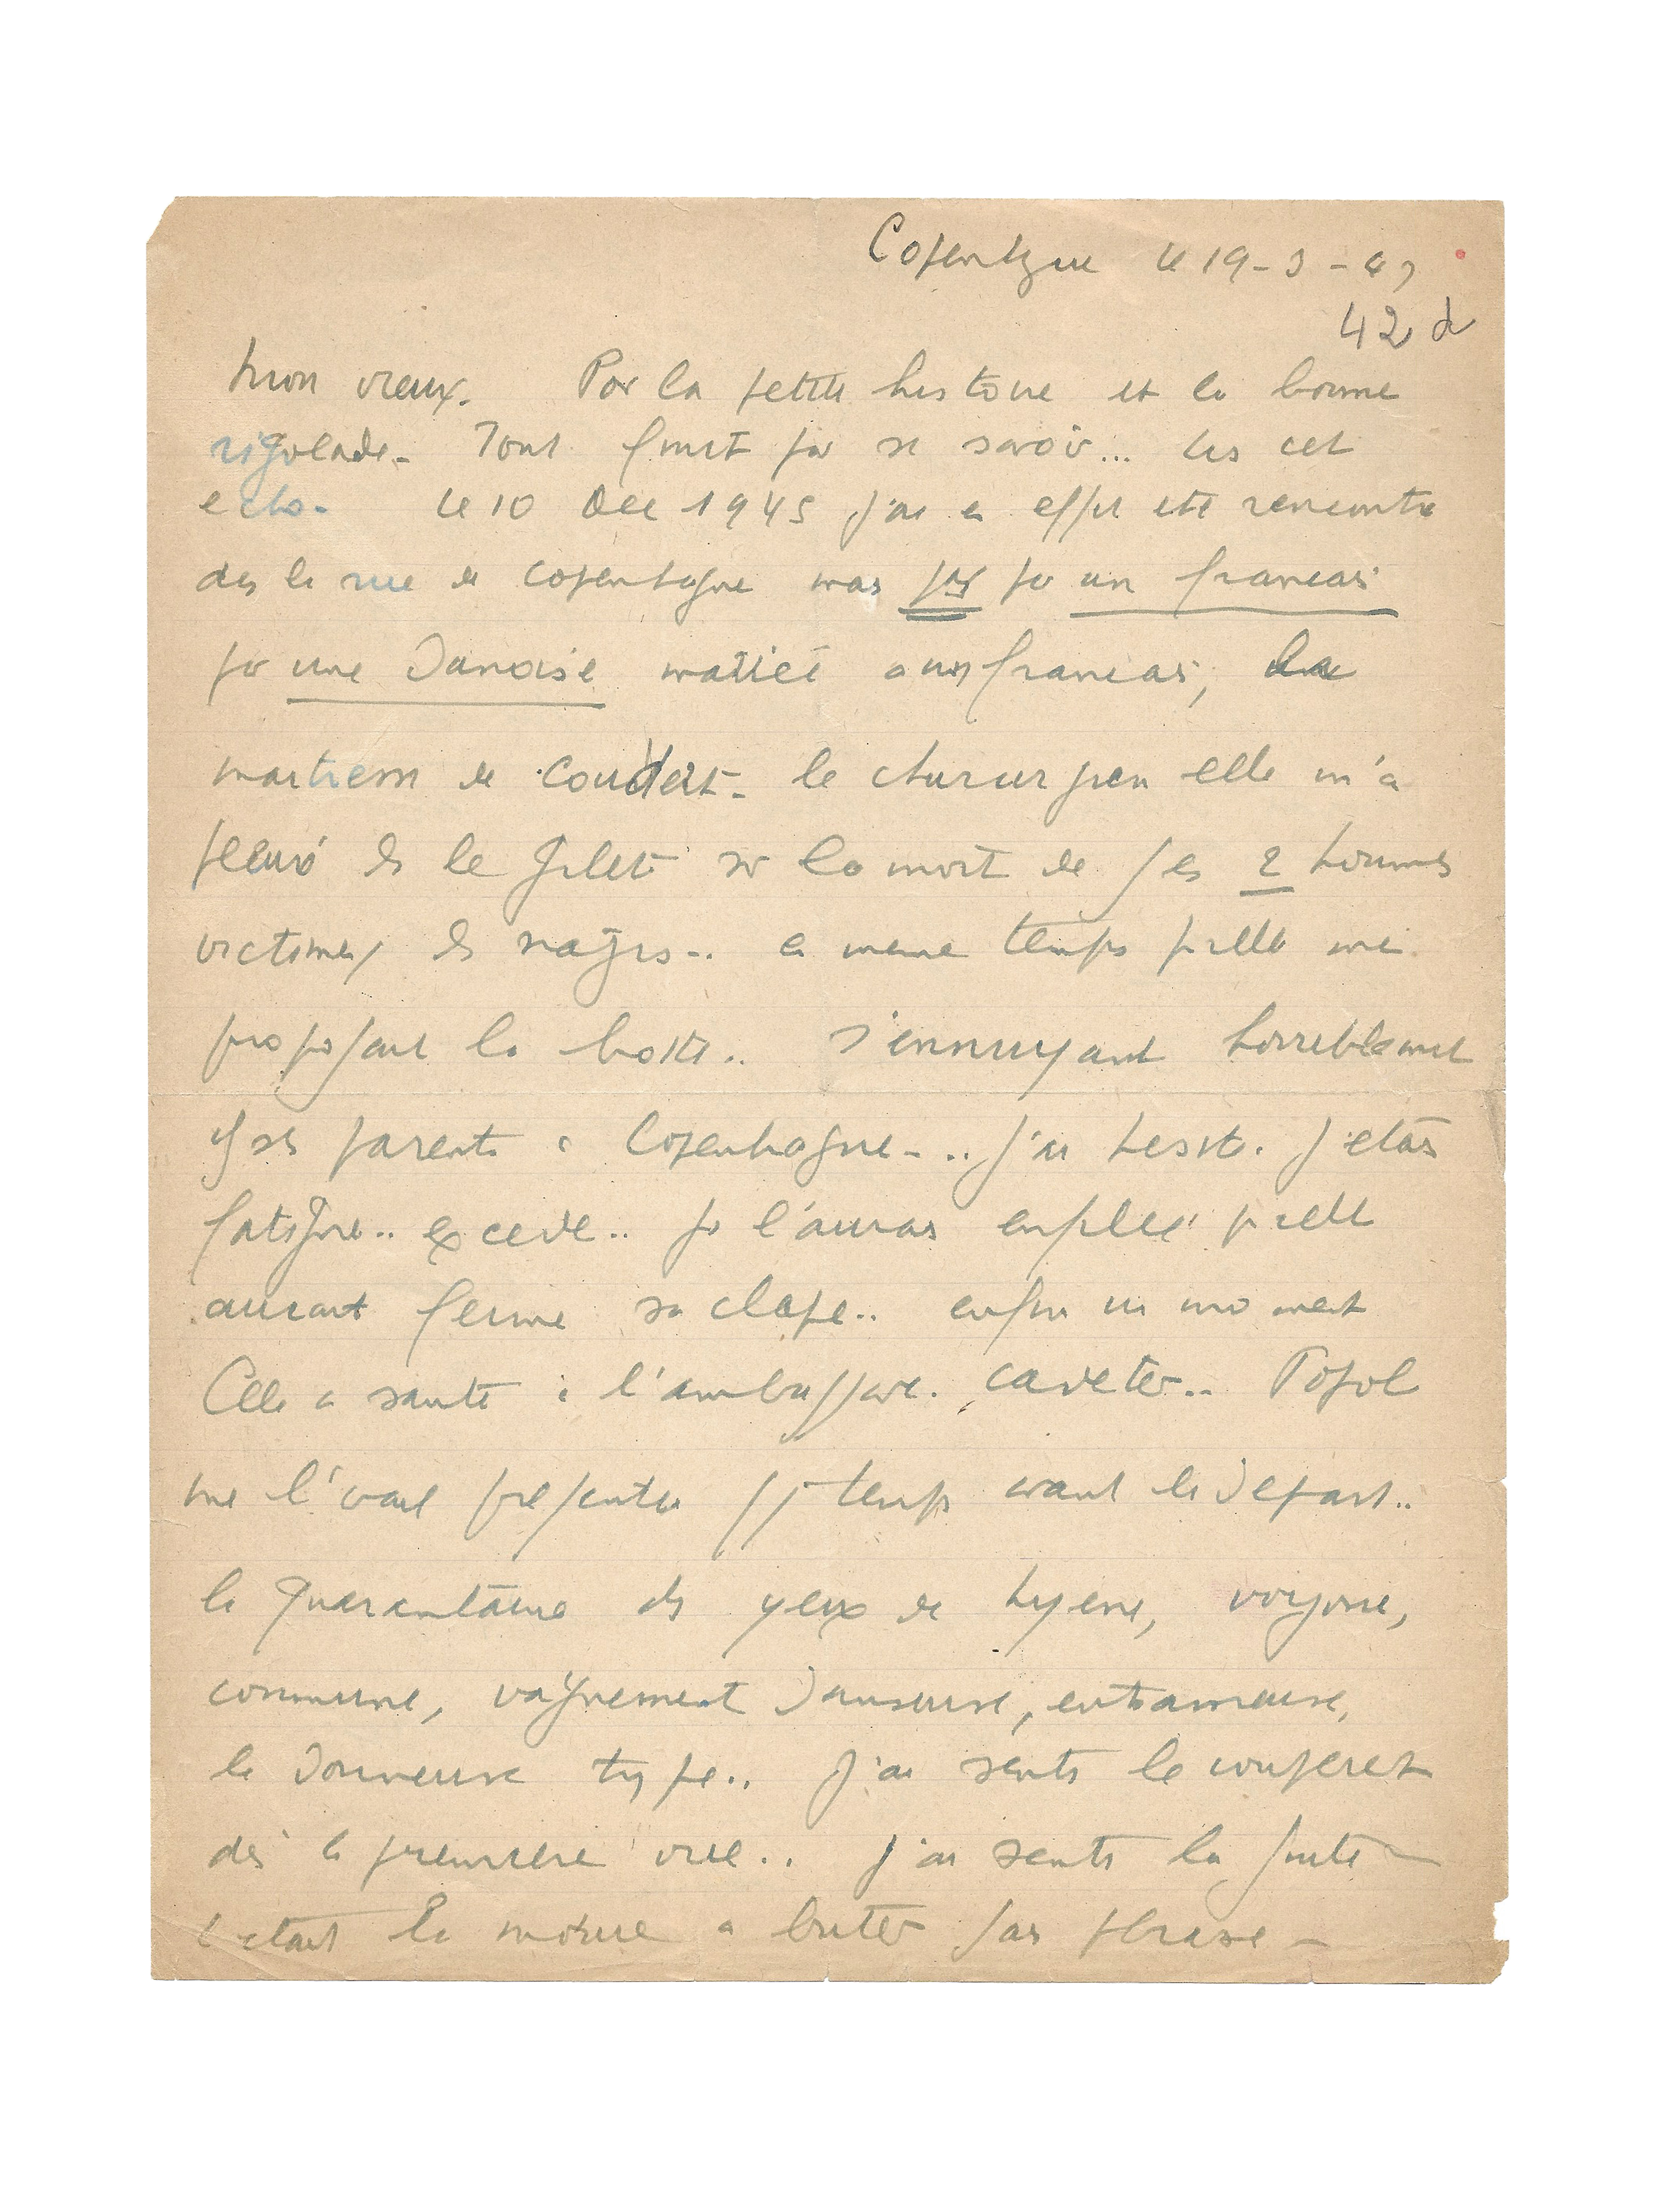 Copenhague le 19-3-47
42 d
Mon vieux. Pour la petite histoire et la bonne
rigolade. Tout finit par se savoir... Lis cet
echo. Le 10 Dec 1945 j'ai en effet ete rencontré
ds la rue de Copenhague mais pas par un francais
par une Danoise mariée aux francais, la
maitresse de Coudert. le chirurgien elle m'a
pleuré ds le gilet sur la mort de ses 2 hommes
victimes ds nazis.. en meme temps qu'elle me
proposait la botte.. S'ennuyant horriblement
chez ses parents à Copenhague... j'ai hesité. J'etais
fatigué.. excedé.. je l'aurais enfilée qu'elle
aurait fermé sa clape.. enfin un moment
Elle a sauté à l'ambassade. caveter.. Popol
me l'avait présentée qq temps avant le Depart..
la quarantaine ds yeux de hyene, voyoue,
commune, vaguement Danseuse, entraineuse,
la Donneuse type.. J'ai senti le couperet
dès la premiere vue.. j'ai senti la fuite
C'etait la moure a buter sans phrase -